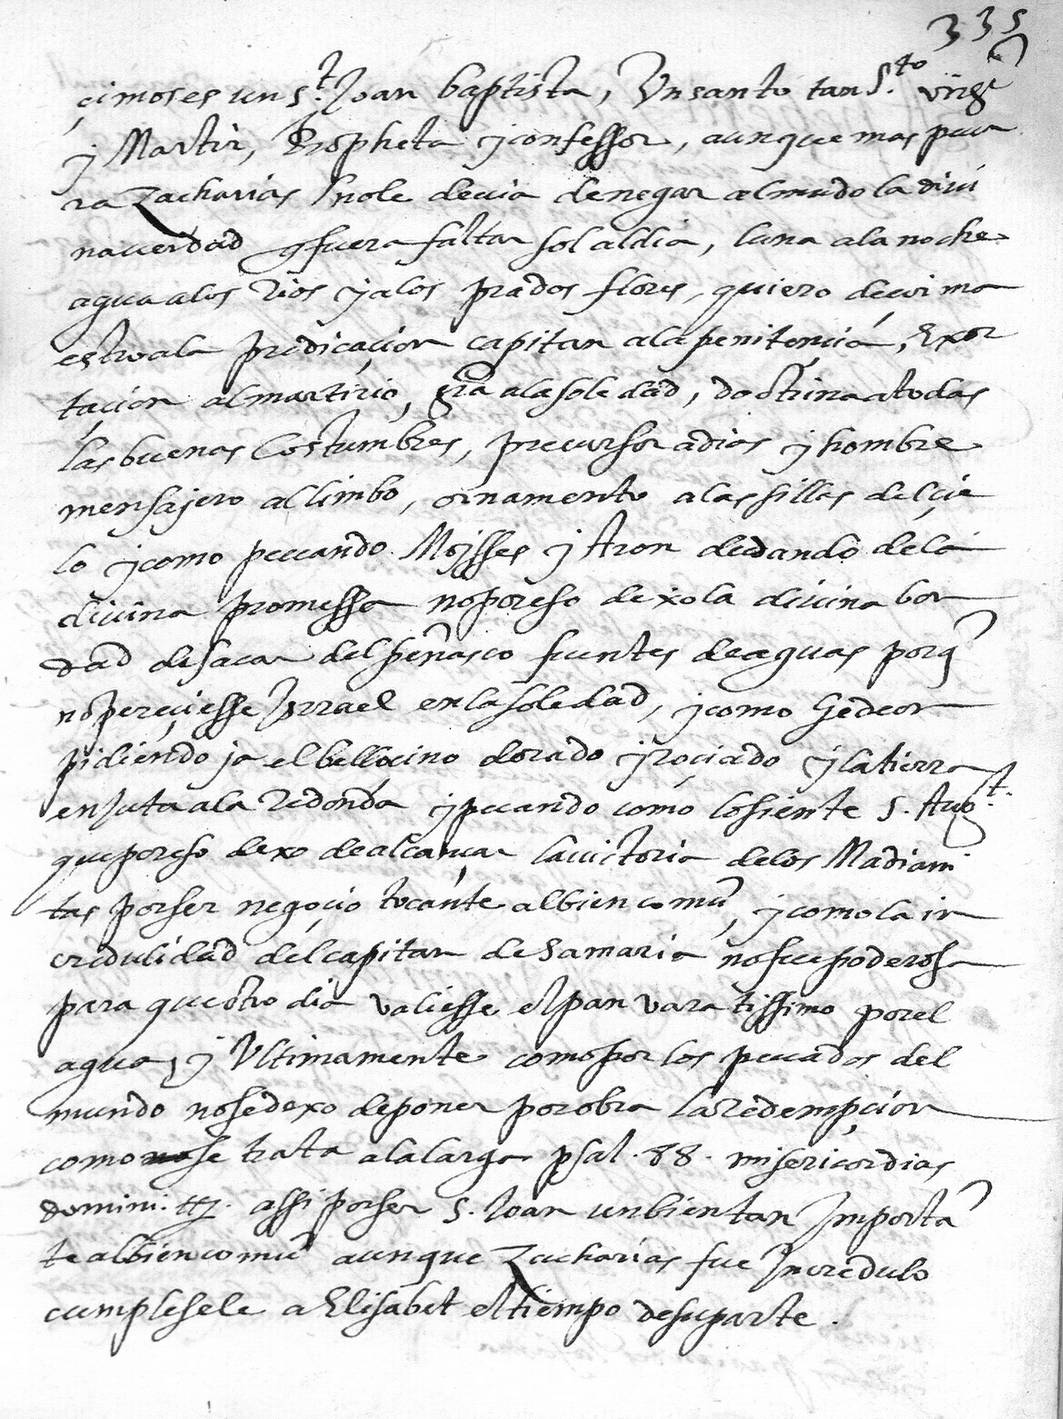 335
çimos es un s.t Joan baptista, Un santo tan S.to virgẽ
y Martir, Propheta y confessor, aunque mas pecca
ra Zacharias no le deuia de negar al mudo la diui
na uerdad q fuera faltar sol al dia, luna a la noche
agua a los Rios y a los prados flores, quiero decir ma
estro a la predicaçion capitan a la penitençia, Exor
taçion al martirio, gra a la soledad, doctrina a todas
las buenas Costumbres, precursor a dios y hombre
mensajero al limbo, ornamento a las sillas del çie
lo y como peccando Moysses y Aron dudando de la
diuina promessa no por eso dexo la diuina bon
dad de sacar del peñasco fuentes de aguas porq̃
no pereçiesse Isrrael en la soledad, y como Gedeon
pidiendo ja el belloçino dorado y roçiado y la tierra
enjuta a la redonda y peccando como lo siente S. Aug.t
que por eso dexo de alcançar la uictoria de los Madiani
tas por ser negoçio tocante al bien comũ, y como la in
credulidad del capitan de Samaria no fue poderosa
para que otro dia valiesse el pan varatissimo por el
agua, y Ultimamente como por los peccados del
mundo no se dexo de poner por obra la Redempçion
como se trata a la larga psal. 88. misericordias
domini. ttz. assi por ser S. Joan un bien tan Importã
te al bien comũ aunque Zacharias fue Incredulo
cumplesele a Elisabet el tiempo de su parte.